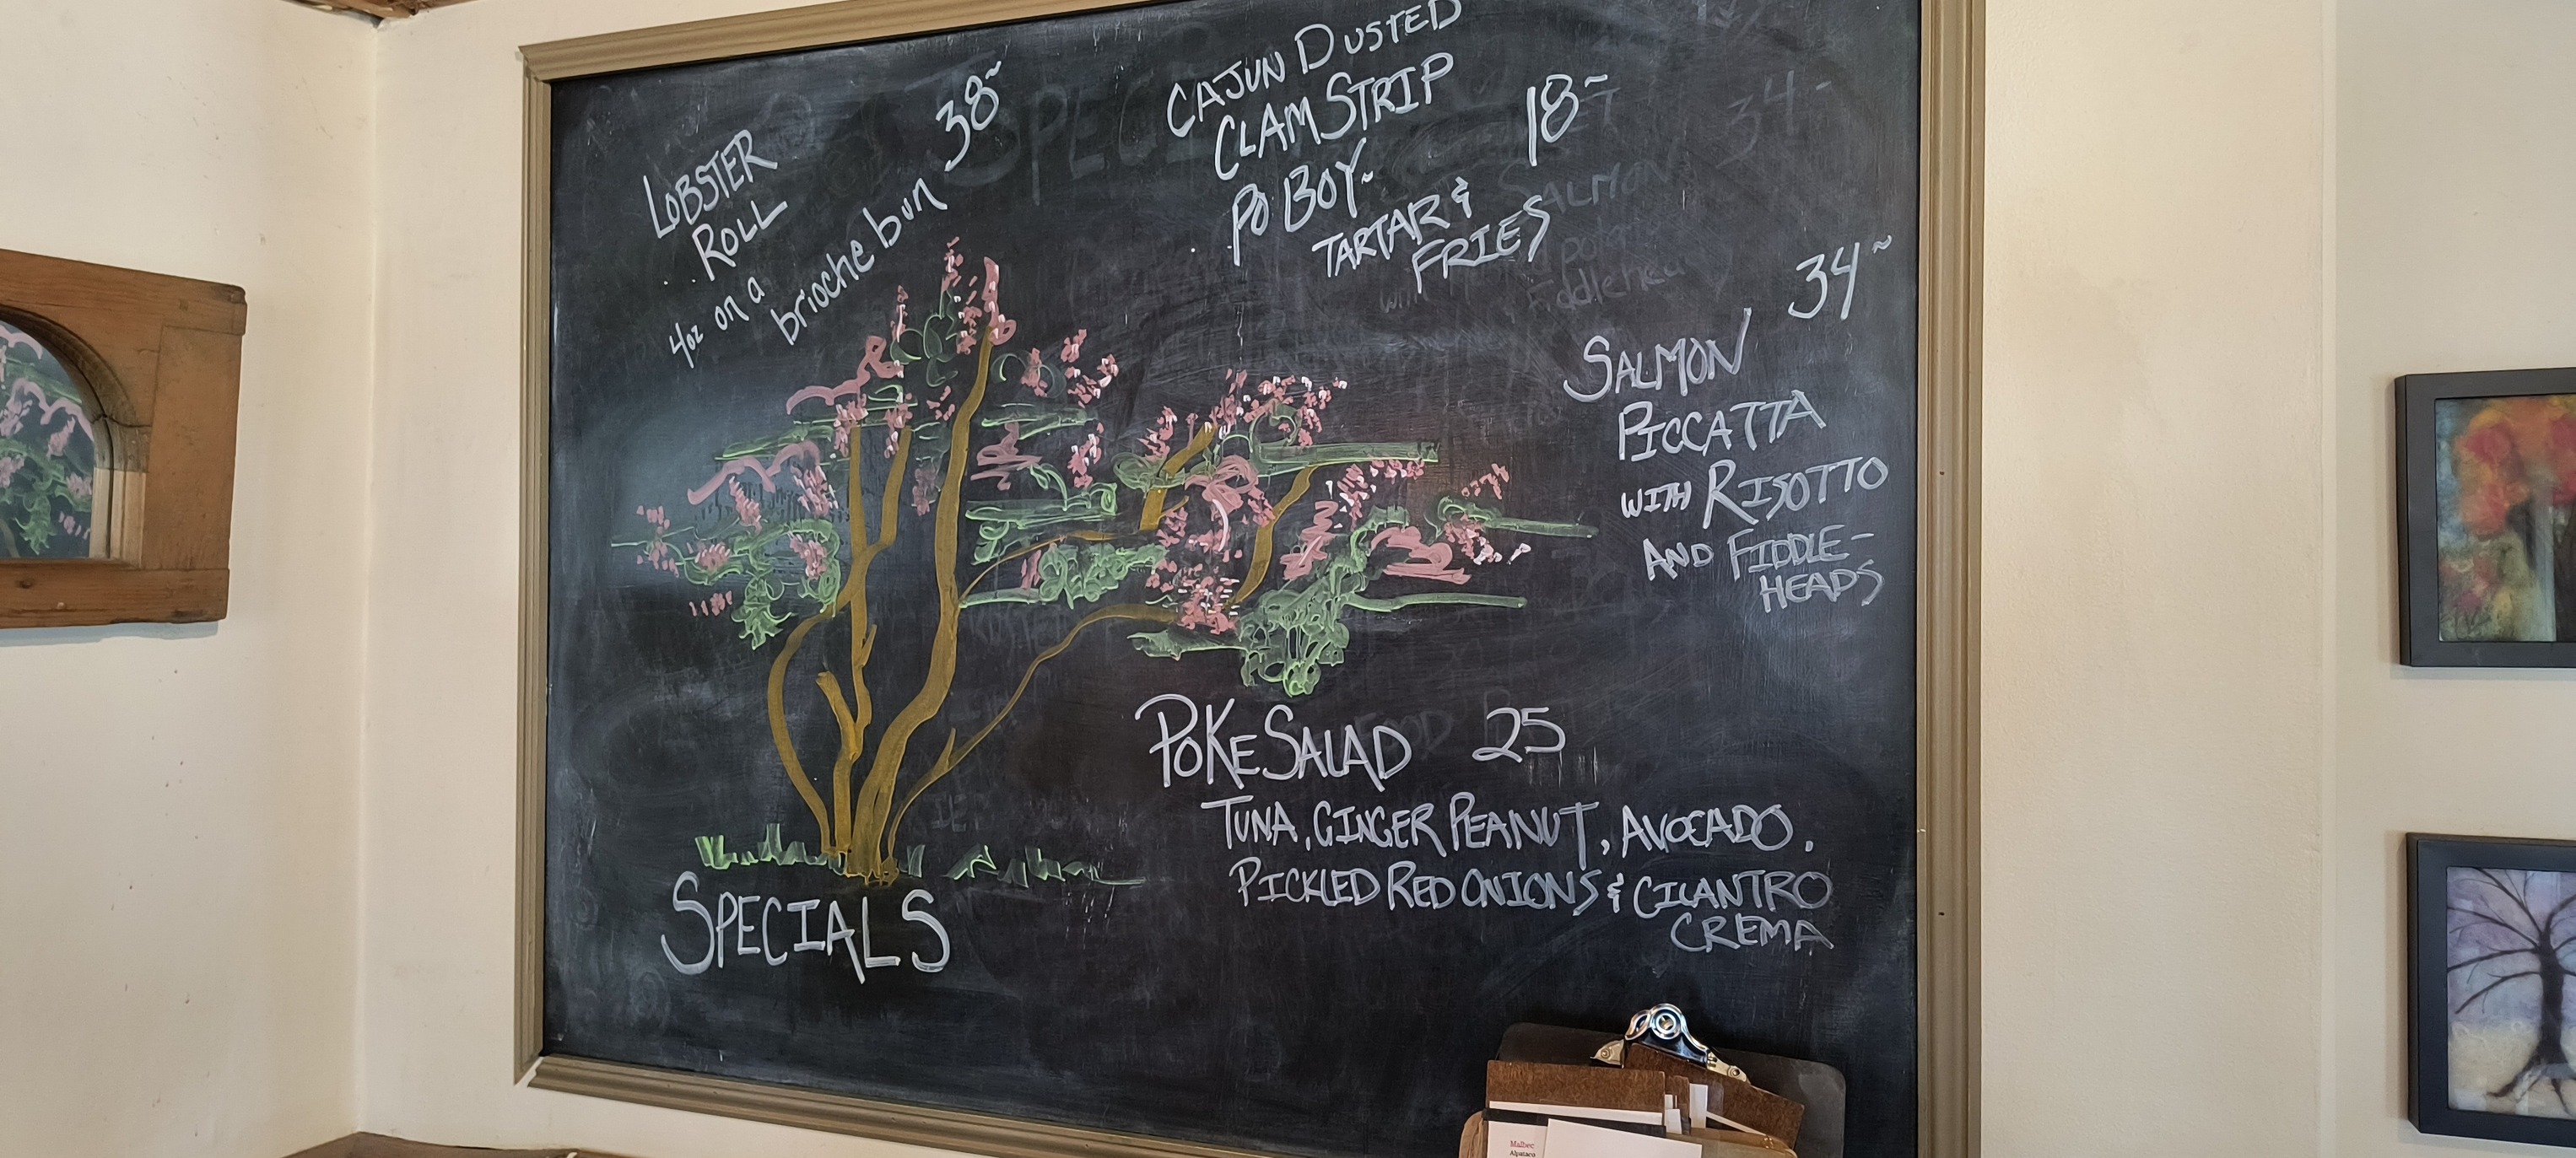 LOBSTER
ROLL
38~
4oz on a
brioche bun
CAJUN DUSTED
CLAM STRIP
PO BOY~
18~
TARTAR &
FRIES
34~
SALMON
PICCATTA
WITH RISOTTO
AND FIDDLE-
HEADS
POKE SALAD 25
TUNA, GINGER PEANUT, AVOCADO,
PICKLED RED ONIONS & CILANTRO
CREMA
SPECIALS
34-
SALMON
potato
Fiddlehea
Malbec
Alpataco